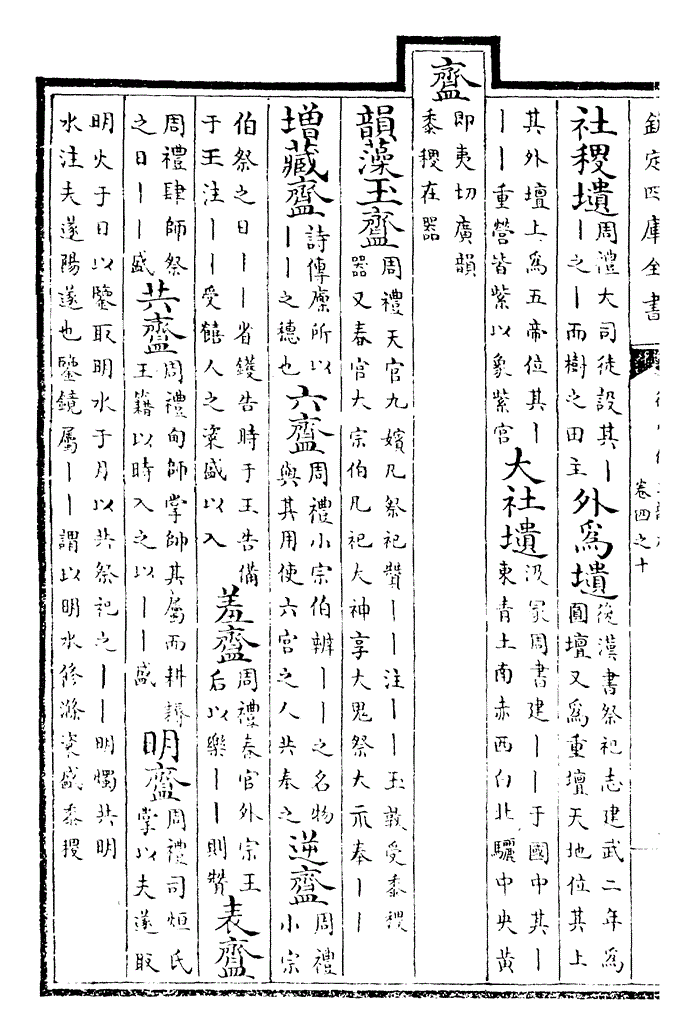 欽定四庫全書
卷四之十
社稷壝 周禮大司徒設其丨丨之丨而樹之田主 外爲壝 後漢書祭祀志建武二年爲圓壇又爲重壇天地位其上
其外壇上爲五帝位其丨丨丨重營皆紫以象紫宫 大社壝 汲冢周書建丨丨于國中其丨東青土南赤西白北驪中央黃
齍 即夷切廣韻黍稷在器
韻藻玉齍 周禮天官九嬪凡祭祀贊丨丨注丨丨玉敦受黍稷器又春官大宗伯凡祀大神享大鬼祭大示奉丨丨
増藏齍 詩傳廩所以丨丨之穗也 六齍 周禮小宗伯辨丨丨之名物與其用使六宫之人共奉之 逆齍 周禮小宗
伯祭之日丨丨省鑊告時于王告備于王注丨丨受饎人之粢盛以入 羞齍 周禮春官外宗王后以樂丨丨則贊 表齍
周禮肆師祭之日丨丨盛 共齍 周禮甸師掌帥其屬而耕耨王籍以時入之以丨丨盛 明齍 周禮司烜氏掌以夫遂取
明火于日以鑒取明水于月以共祭祀之丨丨明燭共明水注夫遂陽遂也鑒鏡屬丨丨謂以明水修滌粢盛黍稷